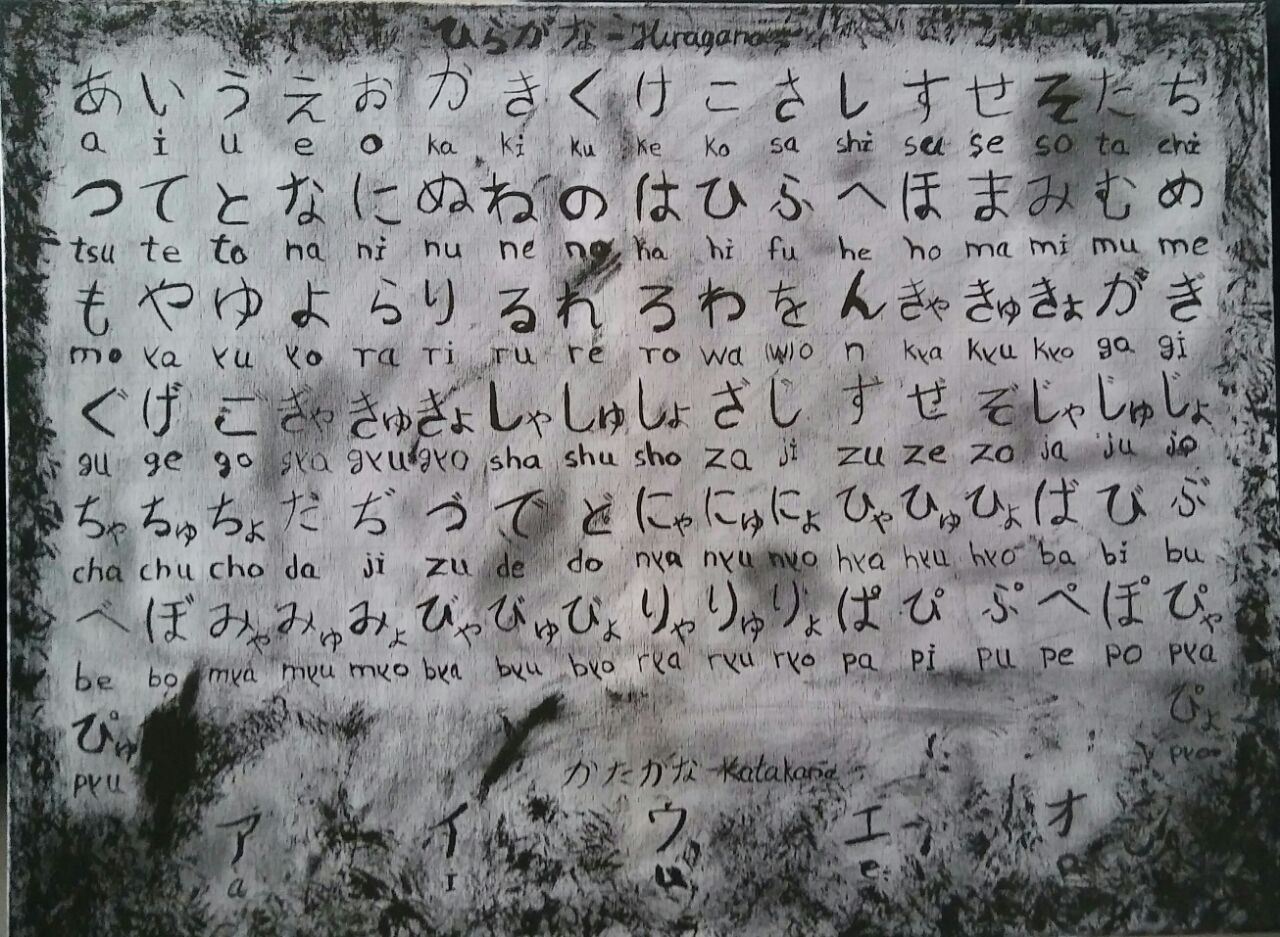 ひらがな - Hiragana
あ い う え お か き く け こ さ し す せ そ た ち
a i u e o ka ki ku ke ko sa shi su se so ta chi
つ て と な に ぬ ね の は ひ ふ へ ほ ま み む め
tsu te to na ni nu ne no ha hi fu he ho ma mi mu me
も や ゆ よ ら り る れ ろ わ を ん きゃ きゅ きょ が ぎ
mo ya yu yo ra ri ru re ro wa (w)o n kya kyu kyo ga gi
ぐ げ ご ぎゃ ぎゅ ぎょ しゃ しゅ しょ ざ じ ず ぜ ぞ じゃ じゅ じょ
gu ge go gya gyu gyo sha shu sho za ji zu ze zo ja ju jo
ちゃ ちゅ ちょ だ ぢ づ で ど にゃ にゅ にょ ひゃ ひゅ ひょ ば び ぶ
cha chu cho da ji zu de do nya nyu nyo hya hyu hyo ba bi bu
べ ぼ みゃ みゅ みょ びゃ びゅ びょ りゃ りゅ りょ ぱ ぴ ぷ ぺ ぽ ぴゃ
be bo mya myu myo bya byu byo rya ryu ryo pa pi pu pe po pya
ぴゅ ぴょ
pyu pyo
かたかな - Katakana
ア イ ウ エ オ
a i u e